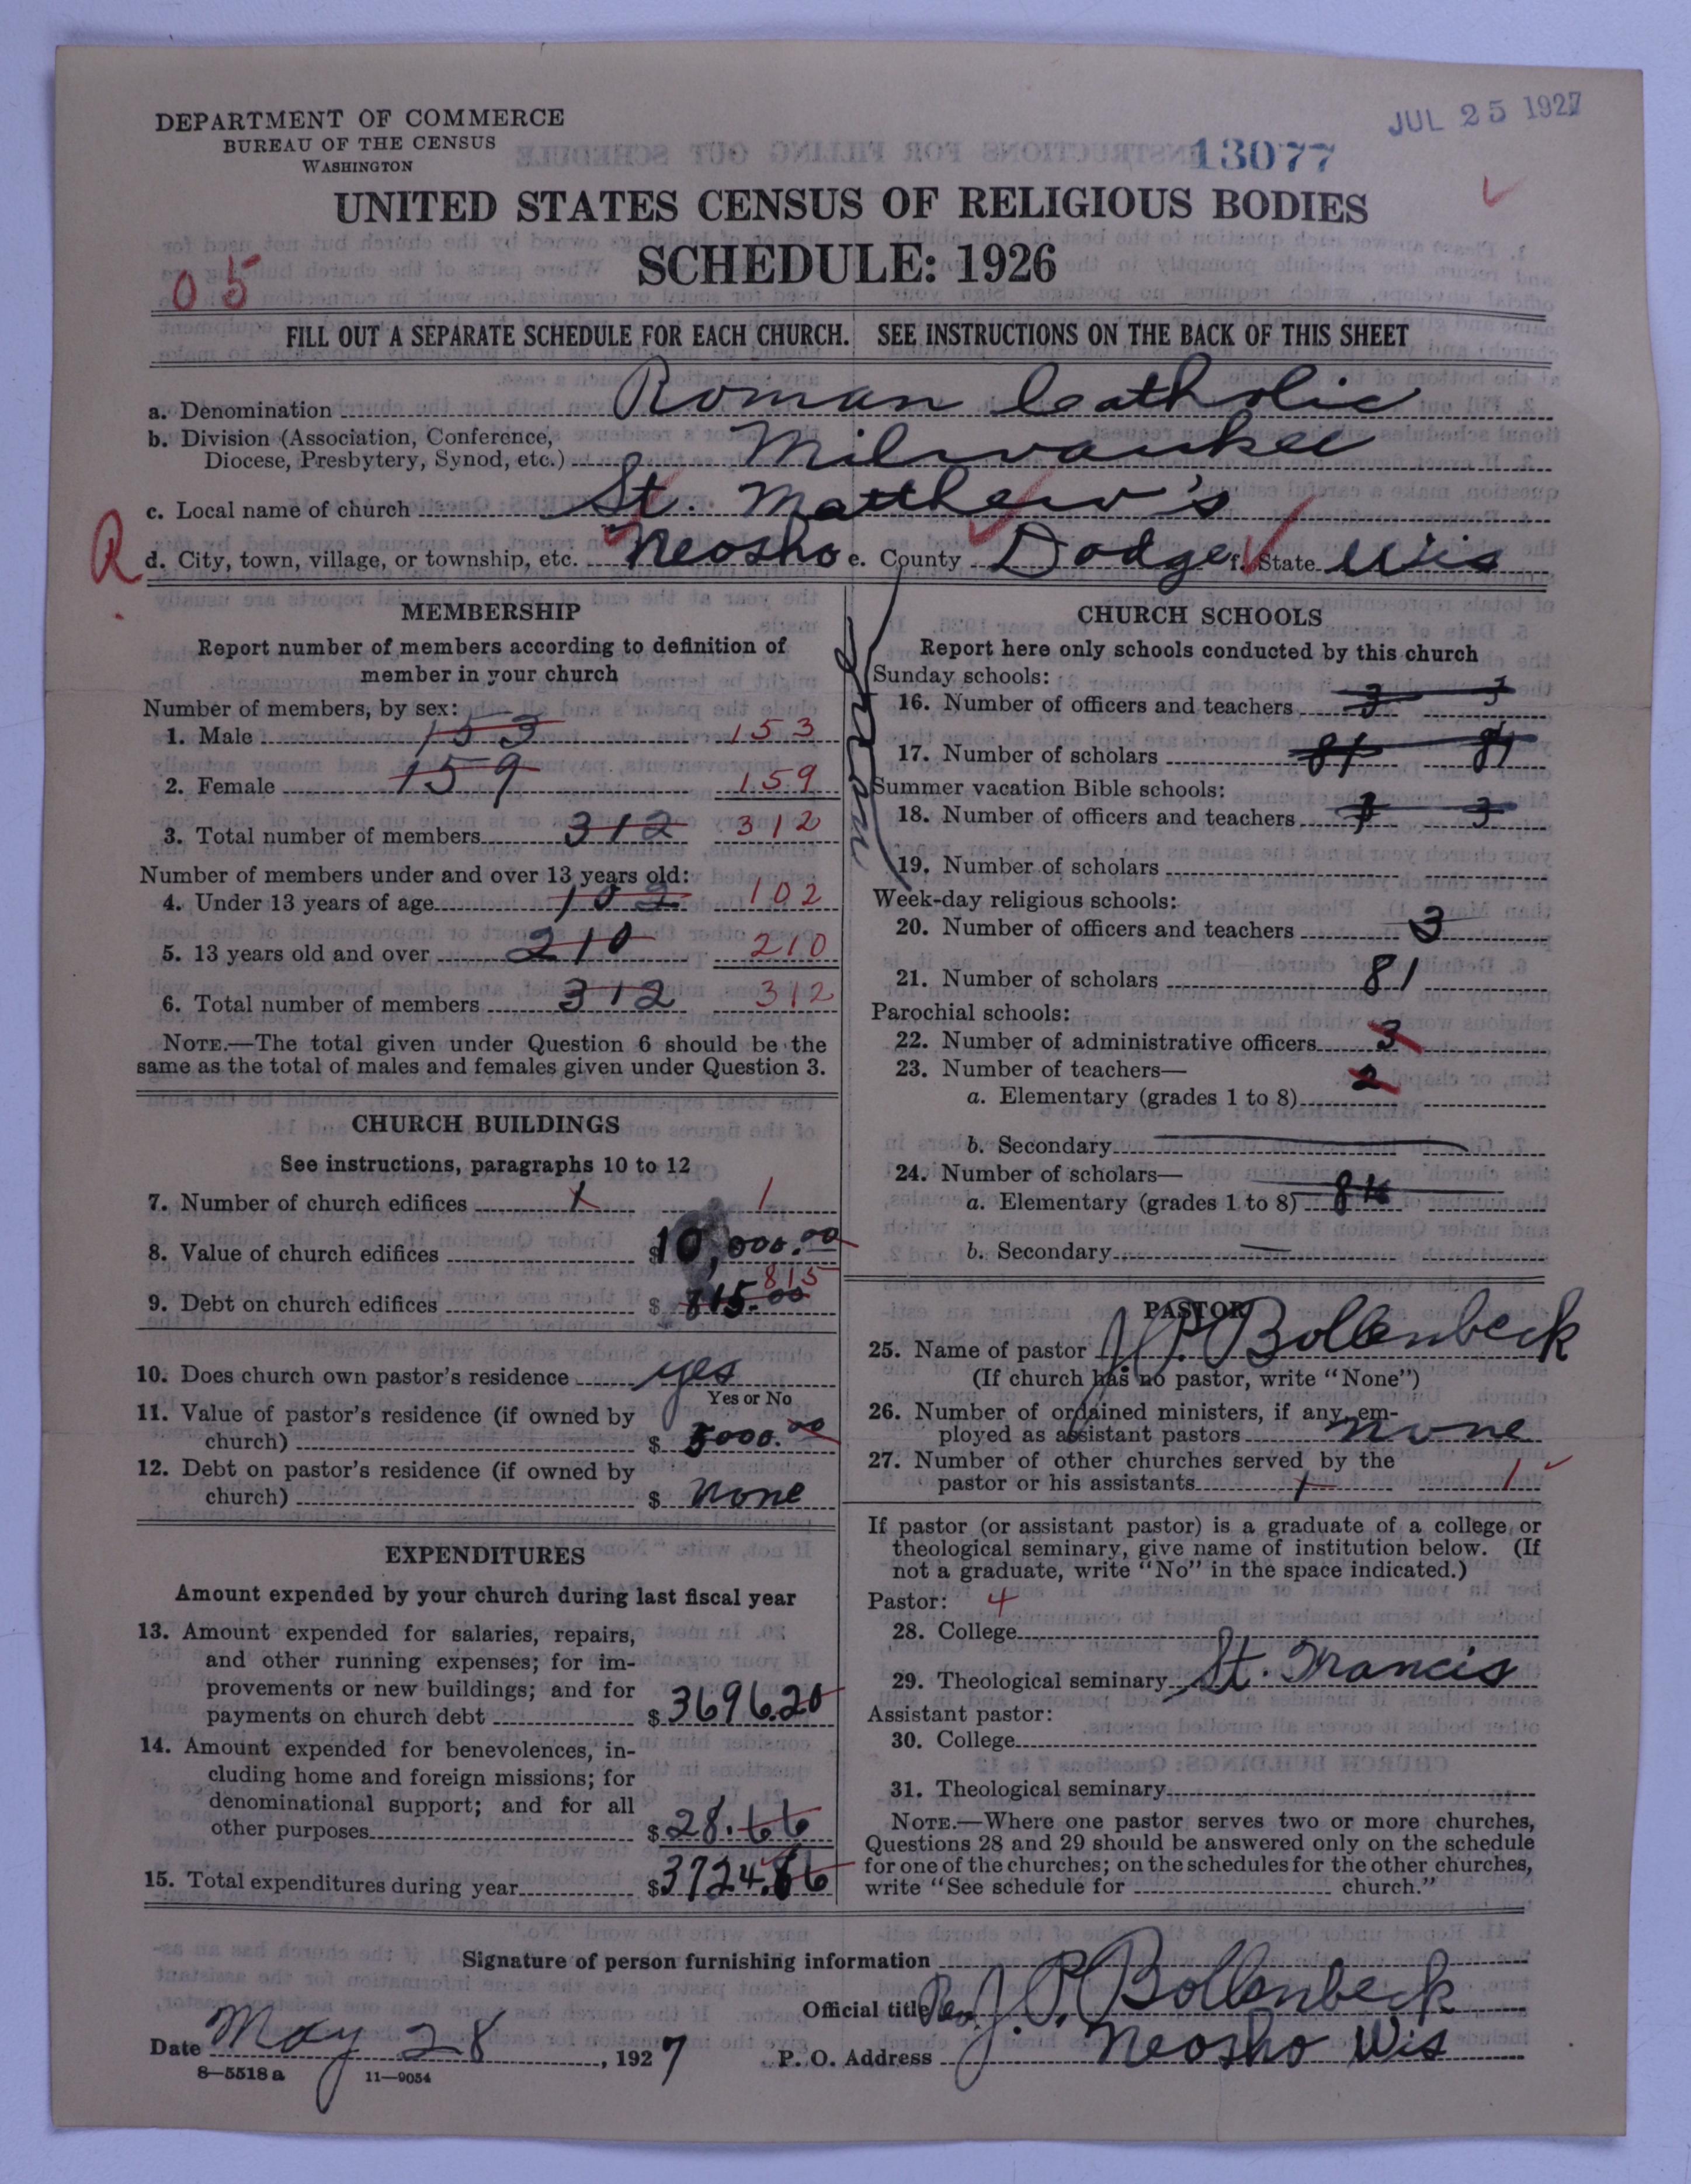 DEPARTMENT OF COMMERCE
BUREAU OF THE CENSUS
WASHINGTON
JUL 25 1927
13077
UNITED STATES CENSUS OF RELIGIOUS BODIES
SCHEDULE: 1926
05
FILL OUT A SEPARATE SCHEDULE FOR EACH CHURCH. SEE INSTRUCTIONS ON THE BACK OF THIS SHEET
a. Denomination Roman Catholic
b. Division (Association, Conference,
Diocese, Presbytery, Synod, etc.) Milwaukee
c. Local name of church St. Matthew's
R d. City, town, village, or township, etc. Neosho e. County Dodge f. State Wis
MEMBERSHIP
Report number of members according to definition of
member in your church
Number of members, by sex:
1. Male 153 153
2. Female 159 159
3. Total number of members 312 312
Number of members under and over 13 years old:
4. Under 13 years of age 102 102
5. 13 years old and over 210 210
6. Total number of members 312 312
NOTE.—The total given under Question 6 should be the
same as the total of males and females given under Question 3.
CHURCH BUILDINGS
See instructions, paragraphs 10 to 12
7. Number of church edifices 1 1
8. Value of church edifices $10,000.00
815
9. Debt on church edifices $ 815.00
10. Does church own pastor's residence yes
Yes or No
11. Value of pastor's residence (if owned by
church) $ 5000.00
12. Debt on pastor's residence (if owned by
church) $ none
EXPENDITURES
Amount expended by your church during last fiscal year
13. Amount expended for salaries, repairs,
and other running expenses; for im-
provements or new buildings; and for
payments on church debt $ 3696.20
14. Amount expended for benevolences, in-
cluding home and foreign missions; for
denominational support; and for all
other purposes $ 28.66
15. Total expenditures during year $3724.86
CHURCH SCHOOLS
Report here only schools conducted by this church
Sunday schools:
16. Number of officers and teachers 3 3
17. Number of scholars 81 81
Summer vacation Bible schools:
18. Number of officers and teachers 3
19. Number of scholars
Week-day religious schools:
20. Number of officers and teachers 3
21. Number of scholars 81
Parochial schools:
22. Number of administrative officers 3
23. Number of teachers—
a. Elementary (grades 1 to 8) 2
b. Secondary
24. Number of scholars—
a. Elementary (grades 1 to 8)
b. Secondary —
PASTOR
25. Name of pastor J.P. Bollenbeck
(If church has no pastor, write "None")
26. Number of ordained ministers, if any, em-
ployed as assistant pastors none
27. Number of other churches served by the
pastor or his assistants 1 1
If pastor (or assistant pastor) is a graduate of a college or
theological seminary, give name of institution below. (If
not a graduate, write "No" in the space indicated.)
Pastor: 4
28. College
29. Theological seminary St. Francis
Assistant pastor:
30. College
31. Theological seminary
NOTE.—Where one pastor serves two or more churches,
Questions 28 and 29 should be answered only on the schedule
for one of the churches; on the schedules for the other churches,
write "See schedule for church."
Signature of person furnishing information
Official title Rev. J. P. Bollenbeck
Date May 28, 1927 P. O. Address Neosho Wis
8—5518 a 11—9054